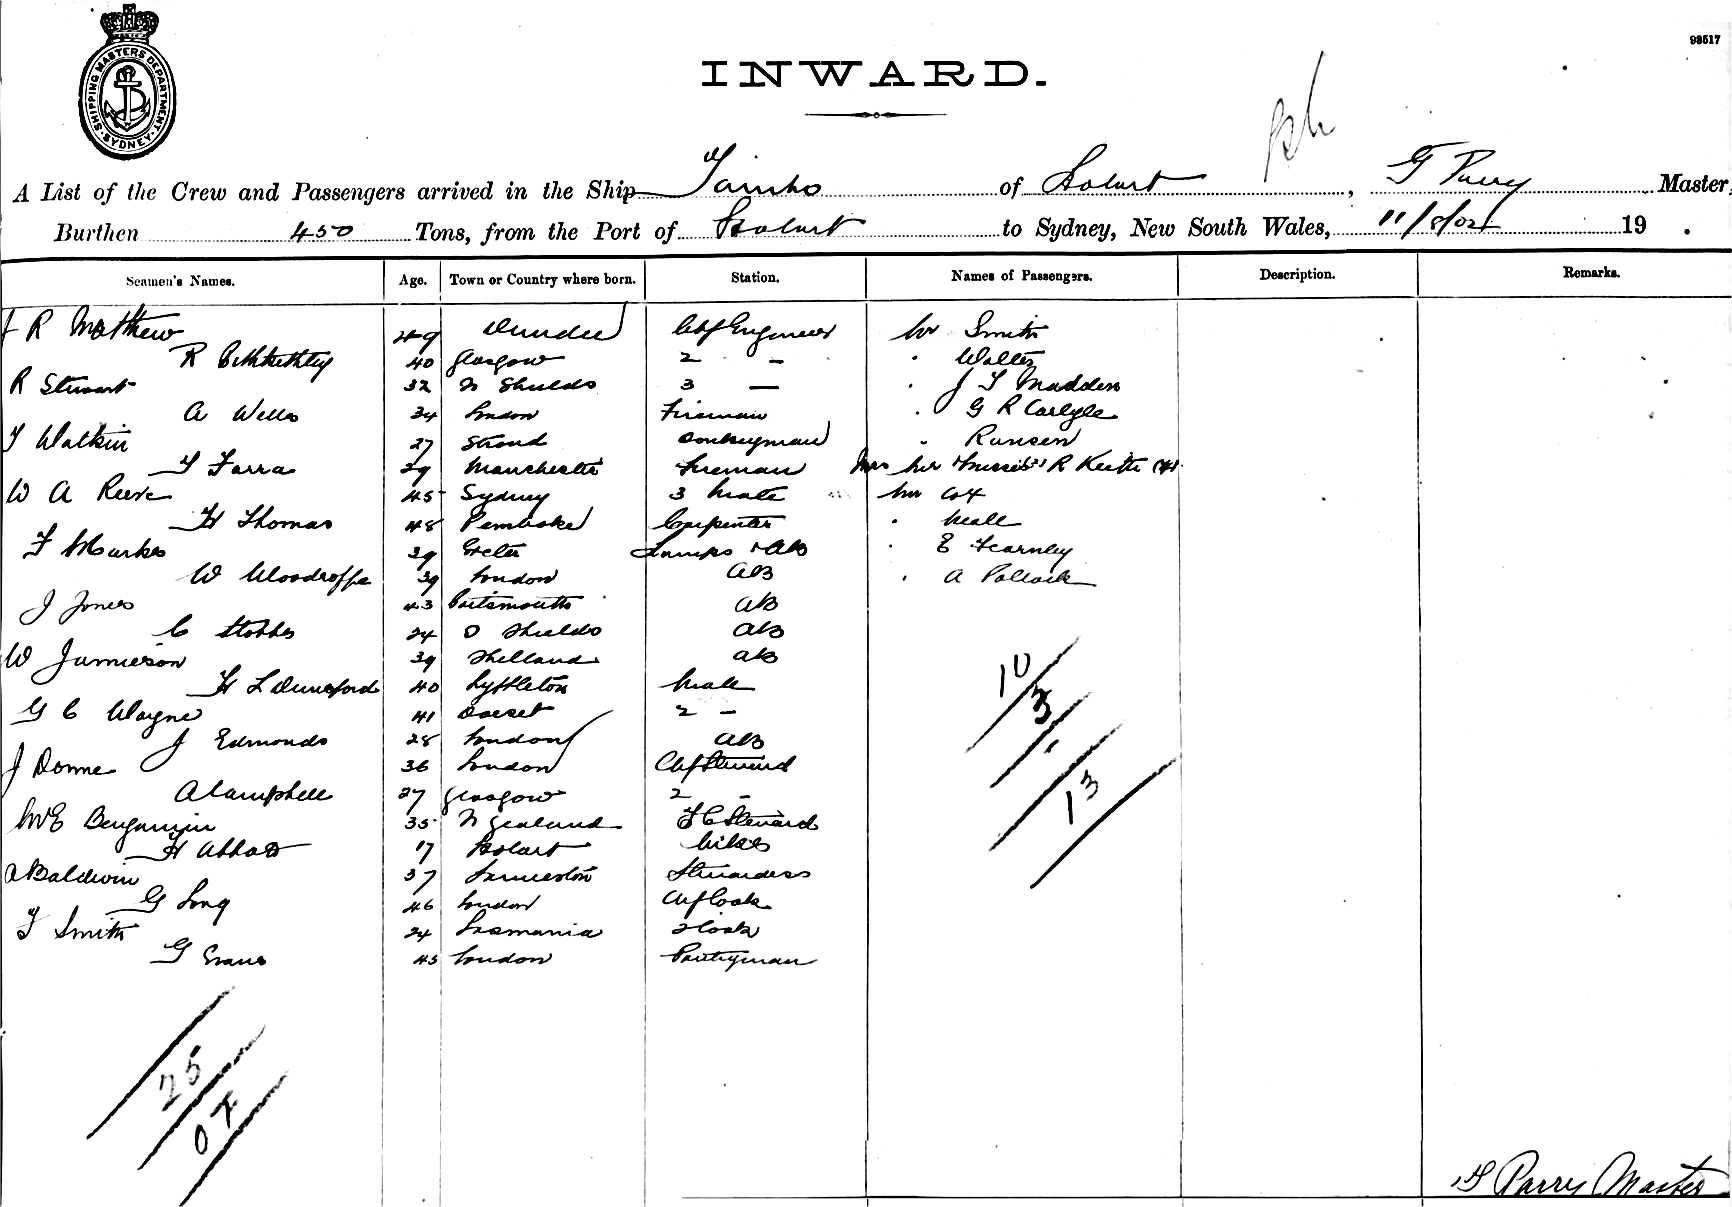 98517
SHIPPING MASTERS DEPARTMENT
SYDNEY
INWARD.
A List of the Crew and Passengers arrived in the Ship Tambo of Hobart, G Parry Master,
Burthen 450 Tons, from the Port of Hobart to Sydney, New South Wales, 11/8/04 19 .
Seamen's Names. Age. Town or Country where born. Station. Names of Passengers. Description. Remarks.
J R Matthew 49 Dundee Chf Engineer Mr Smith
R 40 Glasgow 2 - - " Walter
R Stewart 32 N Shields 3 — " J T Madden
A Wells 34 London Fireman " G R Carlyle
T Watkin 27 Stroud Donkeyman " Runsen
T Farra 29 Manchester Fireman Mrs R
W A Reeve 45 Sydney 3 Mate Mr Cox
H Thomas 48 Pembroke Carpenter " Meall
F Marks 39 Exeter Lamps & AB " E Fearnley
W Woodroffe 39 London AB " A Pollock
J Jones 43 Portsmouth AB
C Stobbs 24 S Shields AB
W Jamieson 39 Shetland AB
H L Dunsford 40 Lyttleton Mate
G C Wayne 41 Dorset 2 -
J Edmonds 28 London AB
J Donne 36 London Chf Steward
A Campbell 27 Glasgow 2 -
M E Benjamin 35 N Zealand F C Steward
H Abbott 17 Hobart
A Baldwin 37 Launceston Stewardess
G Long 46 London Chf Cook
T Smith 24 Tasmania 2 Cook
G Evans 45 London Pantryman
10
3
13
25
07
G Parry Master